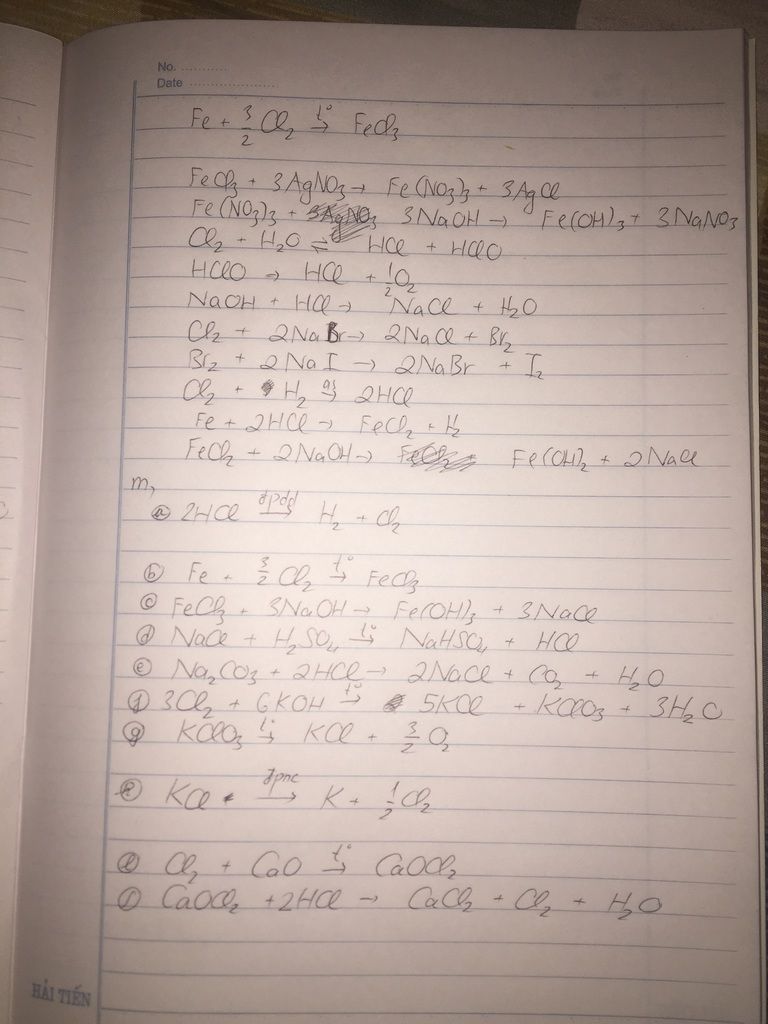 No. ............
Date ........................
Fe + 3/2 Cl₂ →(t°) FeCl₃
FeCl₃ + 3AgNO₃ → Fe(NO₃)₃ + 3AgCl
Fe(NO₃)₃ + 3AgNO₃ 3NaOH → Fe(OH)₃ + 3NaNO₃
Cl₂ + H₂O ⇌ HCl + HClO
HClO → HCl + 1/2 O₂
NaOH + HCl → NaCl + H₂O
Cl₂ + 2NaBr → 2NaCl + Br₂
Br₂ + 2NaI → 2NaBr + I₂
Cl₂ + H₂ →(as) 2HCl
Fe + 2HCl → FeCl₂ + H₂
FeCl₂ + 2NaOH → Fe(OH)₂ + 2NaCl
m,
ⓐ 2HCl →(đpdd) H₂ + Cl₂
ⓑ Fe + 3/2 Cl₂ →(t°) FeCl₃
ⓒ FeCl₃ + 3NaOH → Fe(OH)₃ + 3NaCl
ⓓ NaCl + H₂SO₄ →(t°) NaHSO₄ + HCl
ⓔ Na₂CO₃ + 2HCl → 2NaCl + CO₂ + H₂O
3Cl₂ + 6KOH →(t°) 5KCl + KClO₃ + 3H₂O
ⓖ KClO₃ →(t°) KCl + 3/2 O₂
KCl →(đpnc) K + 1/2 Cl₂
Cl₂ + CaO →(t°) CaOCl₂
CaOCl₂ + 2HCl → CaCl₂ + Cl₂ + H₂O
HẢI TIẾN